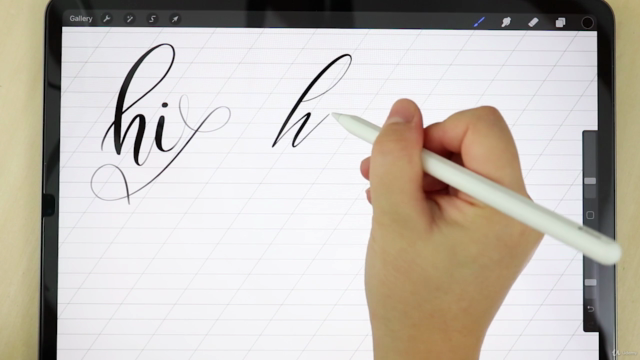 Gallery
hi h